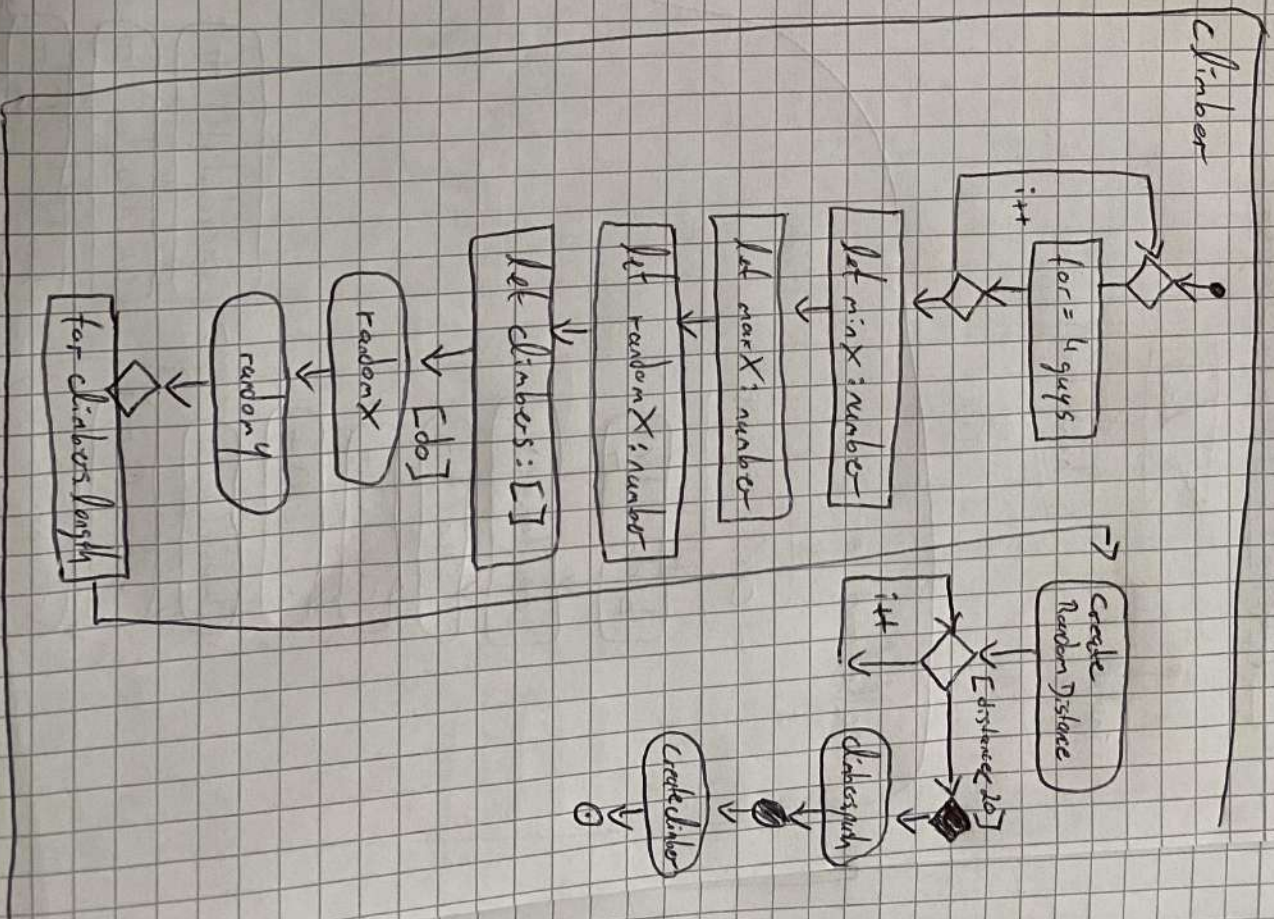 Climber
for = 4 guys
i++
let minX : number
let maxX : number
let randomX : number
let climbers : []
[do]
randomX
randomY
for climbers.length
Create
RandomDistance
[distance<20]
i++
climbers.push
Create climber